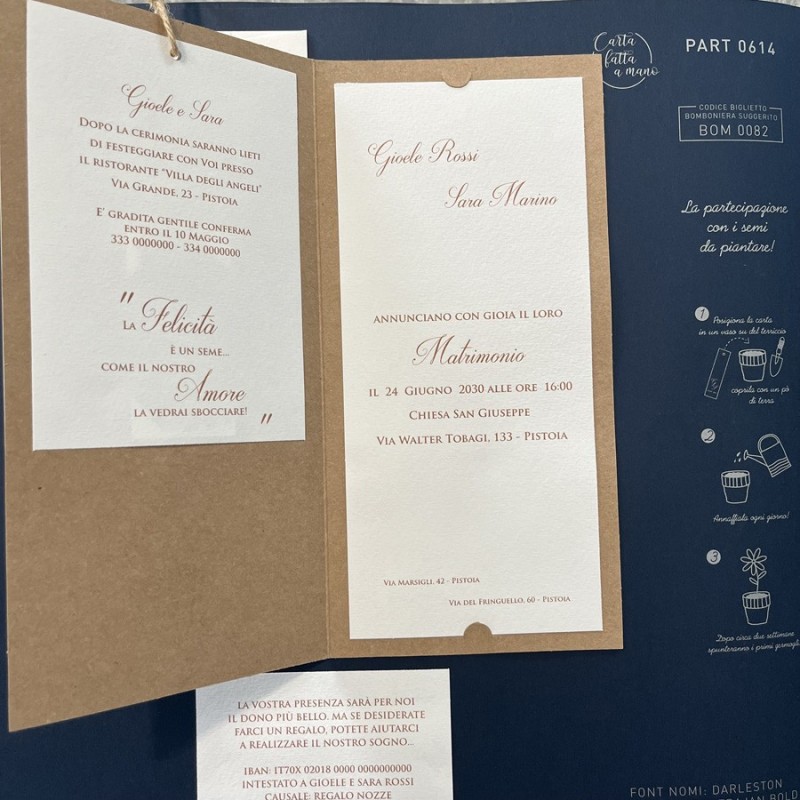 Gioele e Sara
Dopo la cerimonia saranno lieti
di festeggiare con Voi presso
il ristorante "Villa degli Angeli"
Via Grande, 23 - Pistoia
E' gradita gentile conferma
entro il 10 Maggio
333 0000000 - 334 0000000
"
la Felicità
è un seme...
come il nostro
Amore
la vedrai sbocciare!
"
Gioele Rossi
Sara Marino
annunciano con gioia il loro
Matrimonio
il 24 Giugno 2030 alle ore 16:00
Chiesa San Giuseppe
Via Walter Tobagi, 133 - Pistoia
Via Marsigli, 42 - Pistoia
Via del Fringuello, 60 - Pistoia
la vostra presenza sarà per noi
il dono più bello. Ma se desiderate
farci un regalo, potete aiutarci
a realizzare il nostro sogno...
IBAN: IT70X 02018 0000 0000000000
intestato a Gioele e Sara Rossi
causale: regalo nozze
Carta
fatta
a mano
PART 0614
CODICE BIGLIETTO
BOMBONIERA SUGGERITO
BOM 0082
La partecipazione
con i semi
da piantare!
1
Posiziona la carta
in un vaso su del terriccio
coprila con un pò
di terra
2
Annaffiala ogni giorno!
3
Dopo circa due settimane
spunteranno i primi
FONT NOMI: DARLESTON
BOLD